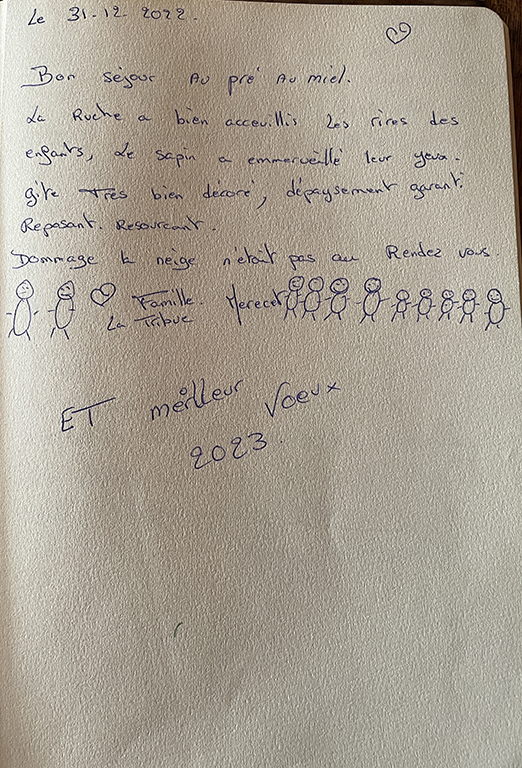 Le 31.12.2022.
Bon séjour Au pré Au miel.
La Ruche a bien acceuillis les rires des
enfants, Le sapin a emmerveillé leur yeux.
gîte Très bien décoré, dépaysement garanti
Reposant. Resourçant.
Dommage la neige n'était pas au Rendez vous.
Famille. Merecet
La Tribue
ET meilleur Voeux
2023.